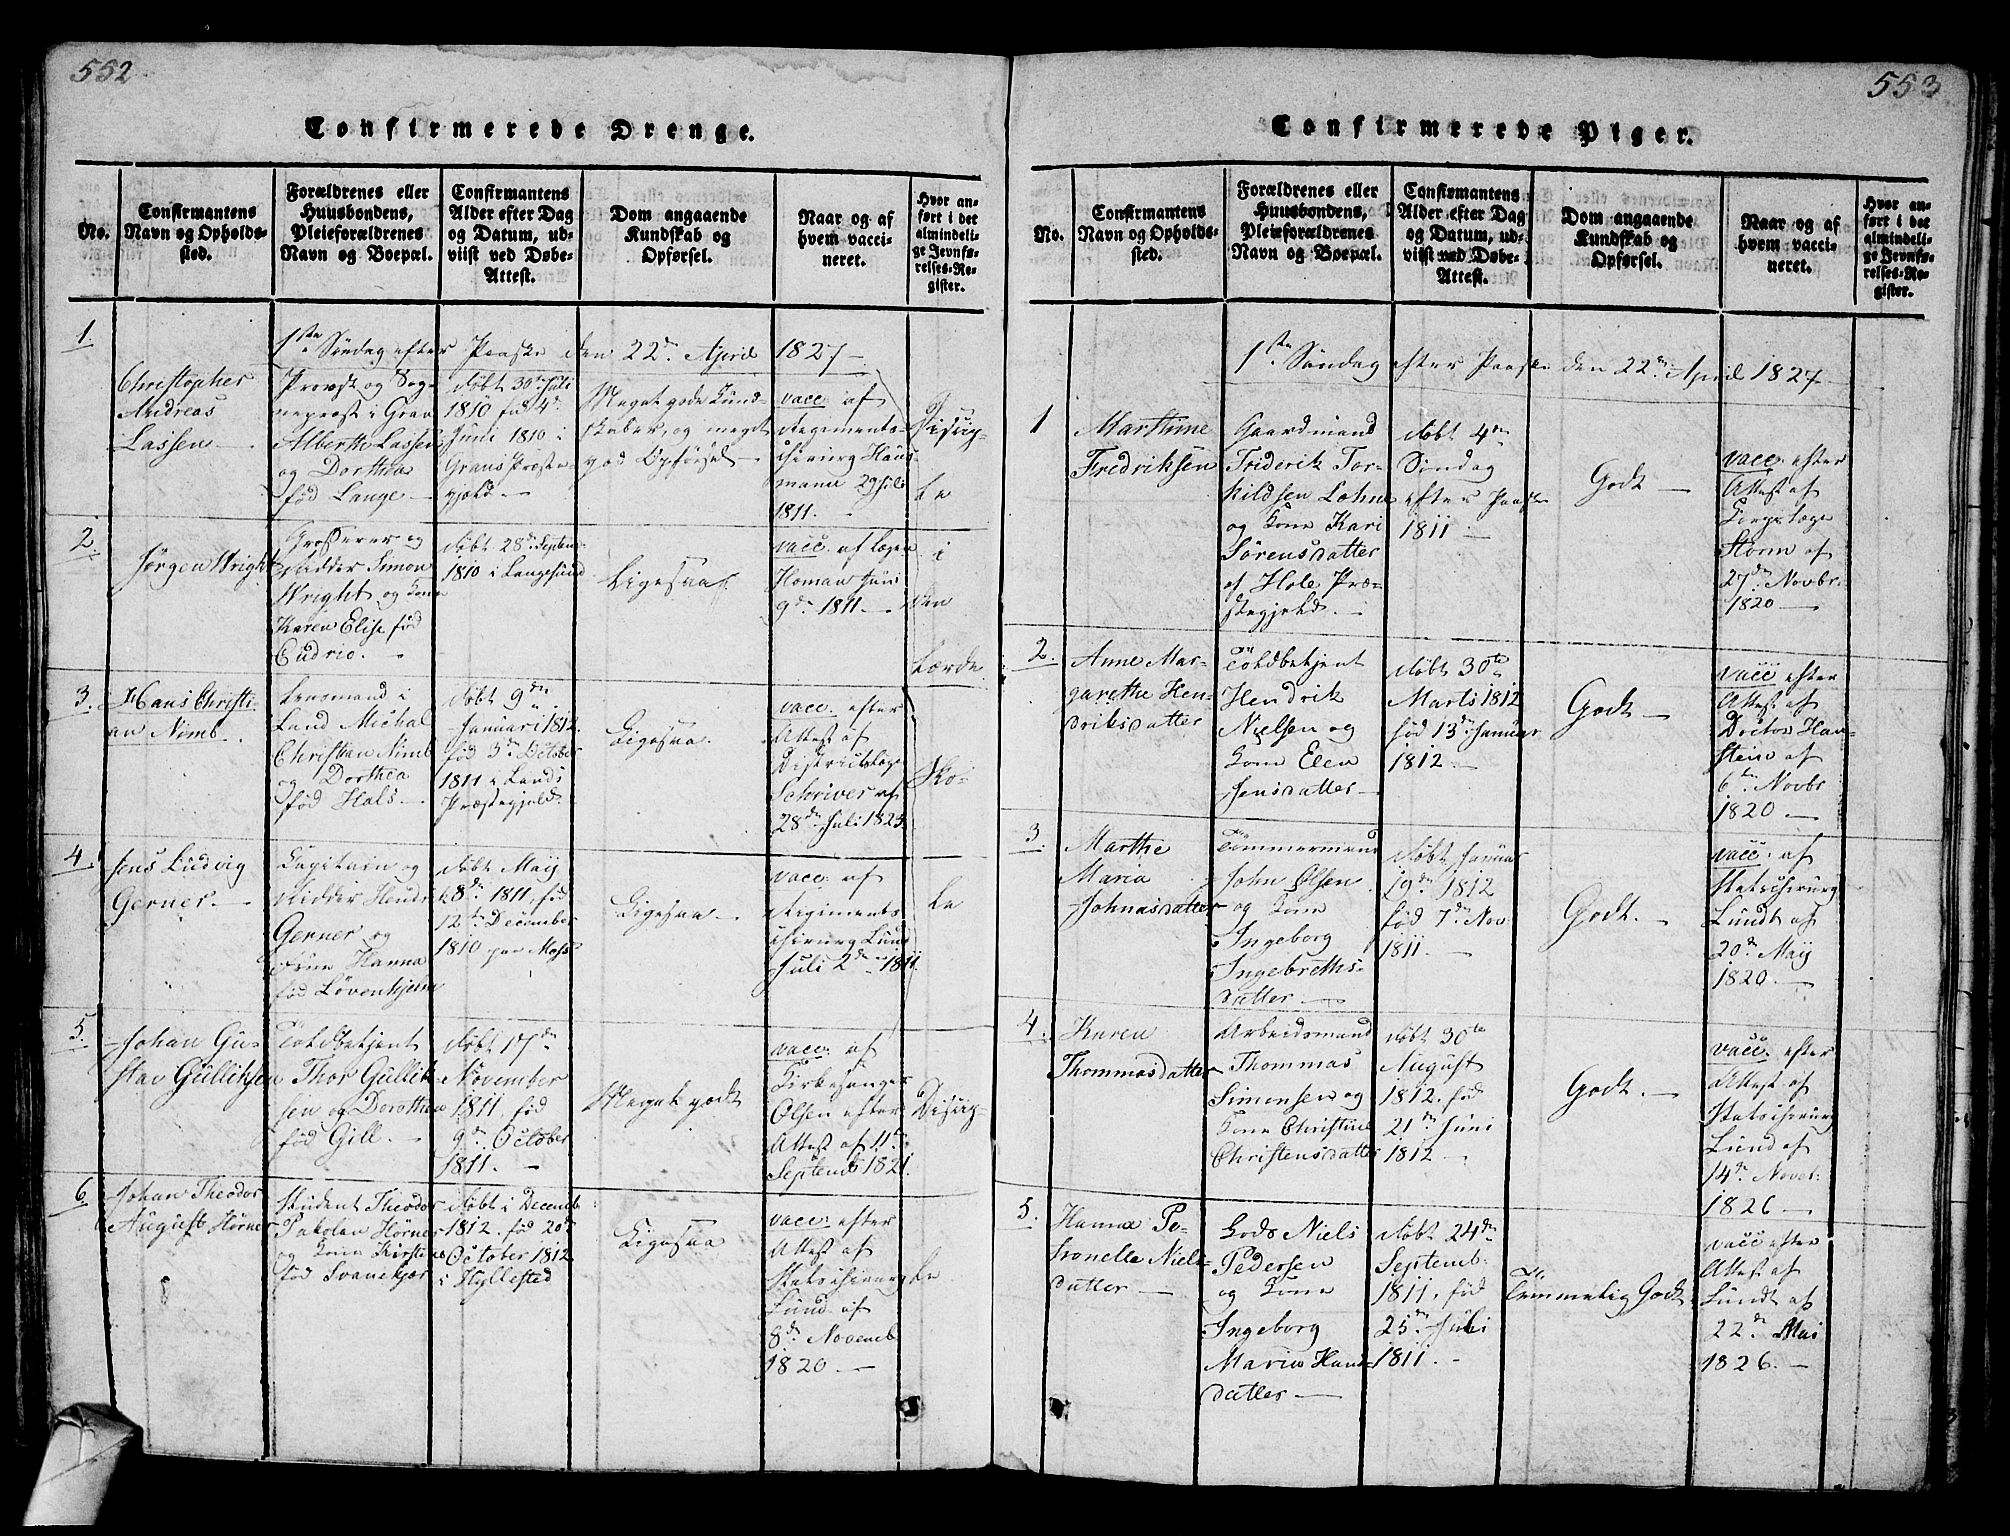 552
Confirmerede Drenge.
No.
Confirmantens
Navn og Opholds-
sted.
Forældrenes eller
Huusbondens,
Pleieforældrenes
Navn og Boepæl.
Confirmantens
Alder efter Dag
og Datum, ud-
viist ved Døbe-
Attest.
Dom angaaende
Kundskab og
Opførsel.
Naar og af
hvem vacci-
neret.
Hvor an-
ført i det
almindeli-
ge Jevnfø-
relses-Re-
gister.
1ste Söndag efter Paaske den 22de April 1827 —
1
Christopher
Andreas
Lassen —
Provst og Sog-
nepræst i Gran
Alberth Lassen
og Dorthea
fød Lange —
døbt 30te Juli
1810 fød 4de
Juni 1810 i
Grans Præste-
gjeld —
Meget gode Kund-
skaber, og meget
god Opførsel —
vacc: af
Regiments
chirurg Haus-
mann 29 Juli
1811. —
Discip-
le
2.
Jørgen Wright
Grosserer og
Ridder Simon
Wright og Kone
Karen Elise fød
Cudrio. —
døbt 28de Septem
1810 i Langesund
Ligesaa.
vacc. af Lægen
Homan Juni
9de 1811. —
i
den
lærde
3.
Hans Christi-
an Nimb
Lensmand i
Land Michal
Christian Nimb
og Dorthea
fød Hals —
døbt 9de
Januari 1812
fød 3de October
1811 i Lands
Præstegjeld
Ligesaa.
vacc: efter
Attest af
Districtslæge
Schriver af
28de Juli 1823
Sko-
4.
Jens Ludvig
Gerner. —
Capitain og
Ridder Hendri
Gerner og
Kone Hanna
fød Løvenhjelm
døbt Maij
8de 1811, fød
12te December
1810 paa Moss
Ligesaa —
vacc: af
Regiments
chirurg Lund
Juli 2de 1811
le
5.
Johan Gu-
stav Gulliksen
Toldbetjent
Thor Gullik
sen og Dorothea
fød Gill. —
døbt 17de
November
1811 fød
9de October
1811. —
Meget godt
vacc: af
Kirkesanger
Olsen efter
Attest af 11te
Septemb 1821.
Discip-
6
Johan Theodor
August Hørner
Student Theodor
Jakolan Hörner
og Kone Kirstine
fød Svanekjær
døbt i Decemb
1812. fød 20de
October 1812
i Hyllested
Ligesaa
vacc: efter
Attest af
Statschirurg
Lund af
8de Novemb
1820 —
le
553
Confirmerede Piger.
No.
Confirmantens
Navn og Opholds-
sted.
Forældrenes eller
Huusbondens,
Pleieforældrenes
Navn og Boepæl.
Confirmantens
Alder efter Dag
og Datum, ud-
viist ved Døbe-
Attest.
Dom angaaende
Kundskab og
Opførsel.
Naar og af
hvem vacci-
neret.
Hvor an-
ført i det
almindeli-
ge Jevnfø-
relses-Re-
gister.
1ste Söndag efter Paaske den 22de April 1827 —
1
Marthine
Fredriksen
Gaardmand
Friderik Tor-
kildsen Lohne
og Kone Kari
Sörensdatter
af Hole Præ-
stegjeld. —
døbt 4de
Søndag
efter Paaske
1811 —
Godt —
vacc. efter
Attest af
Corpslæge
Storm af
27de Novbr.
1820 —
2.
Anne Mar-
garethe Hen-
driksdatter
Toldbetjent
Hendrik
Nielsen og
Kone Elen
Jensdatter —
døbt 30te
Marts 1812
fød 13de Januar
1812 —
Godt —
vacc efter
Attest af
Doctor Han-
stein af
6te Novbr
1820 —
3.
Marthe
Maria
Johnasdatter
Tömmermand
John Olsen
og Kone
Ingeborg
Ingebreths-
datter —
døbt Januar
19de 1812
fød 7de Nov:
1811 —
Godt. —
vacc. af
Statschirurg
Lundt af
20de Maij
1820. —
4.
Karen
Thommasdatter
Arbeidsmand
Thommas
Simensen og
Kone Christine
Christensdatter
døbt 30te
August
1812. fød
21de Juni
1812 —
Godt. —
vacc: efter
Attest af
Statschirurg
Lund af
14de Novbr:
1826 —
5.
Hanna Pe-
tronelle Niels-
datter —
Lods Niels
Pedersen
og Kone
Ingeborg
Maria Hans-
datter —
døbt 24de
Septemb:
1811. fød
25de Juli
1811. —
Temmelig Godt
vacc efter
Attest af
Lundt af
22de Mai
1826. —